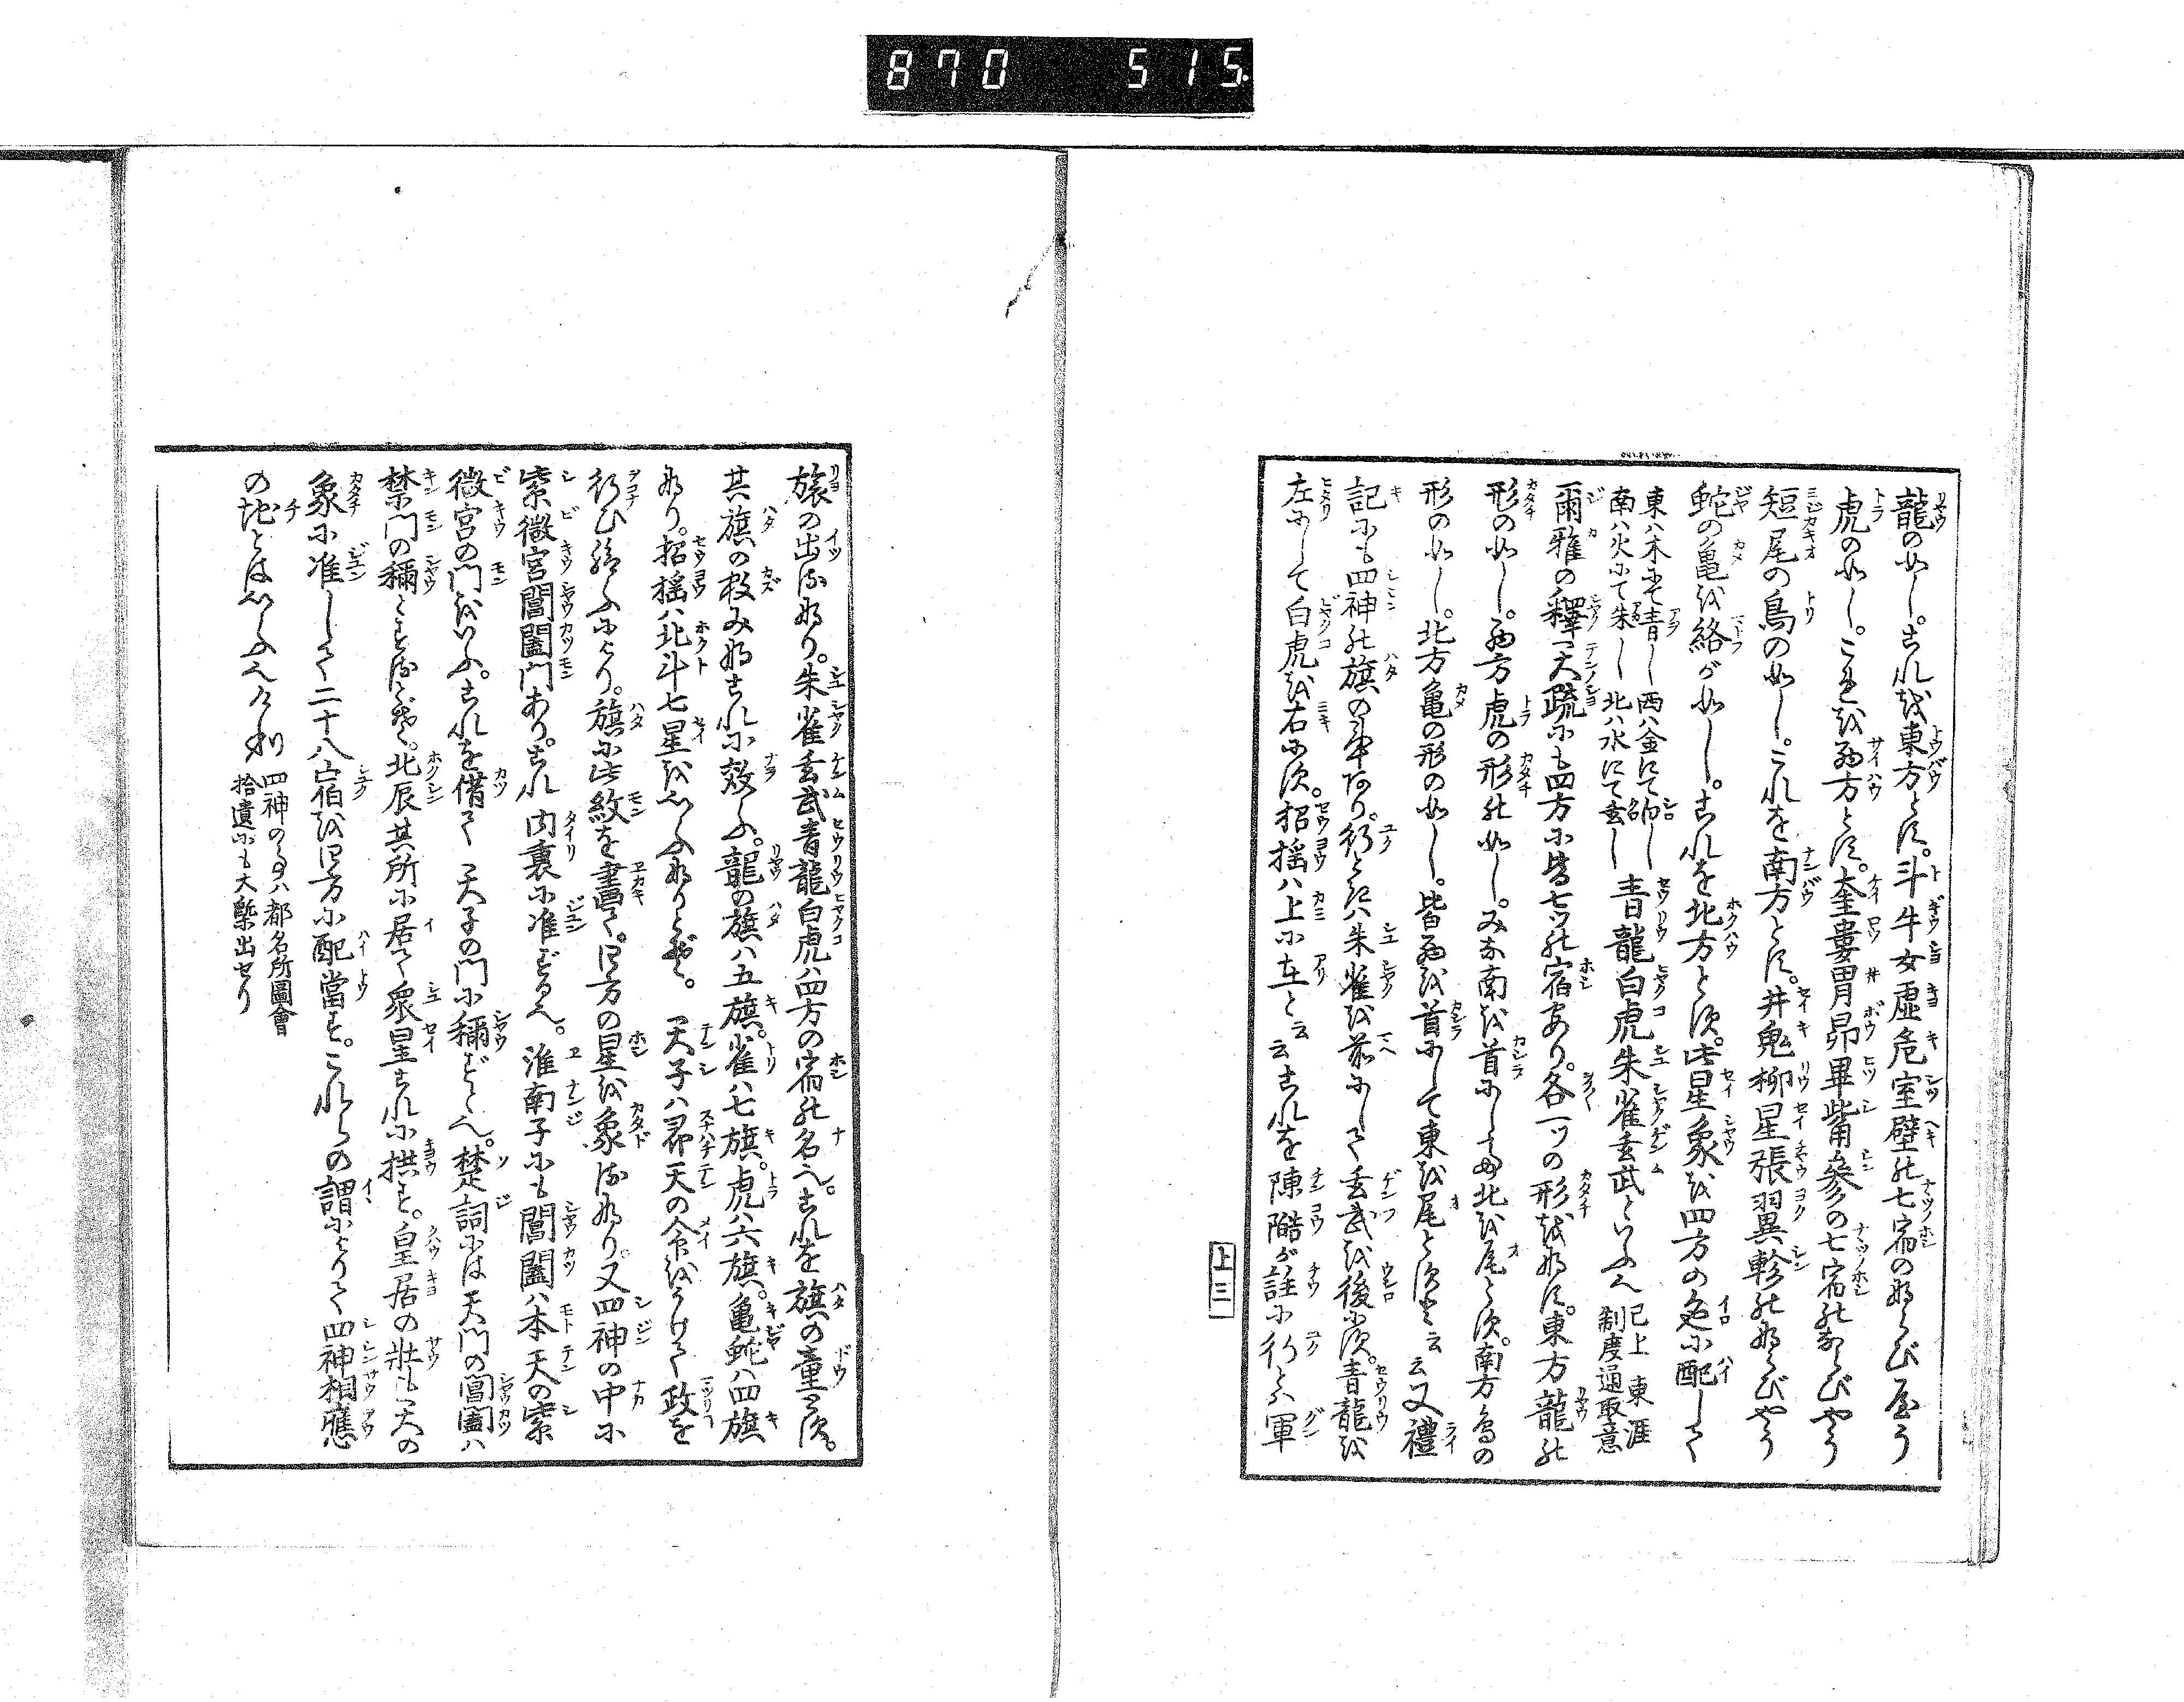 870 515
龍の如し。これを東方とす。斗牛女虚危室壁の七宿のならび屋う
虎の如し。これを西方とす。奎婁胃昴畢觜参の七宿のならびやう
短尾の鳥の如し。これを南方とす。井鬼柳星張翼軫のならびやう
蛇の亀を絡が如し。これを北方とす。此星象を四方の色に配して
東ハ木にて青し 西ハ金にて白し
南ハ火にて朱し 北ハ水にて玄し
青龍白虎朱雀玄武といふ也
已上東涯
制度通取意
爾雅の釋天疏にも四方に皆七ツの宿あり。各一ツの形をなす。東方龍の
形の如し。西方虎の形の如し。みな南を首にし北を尾とす。南方鳥の
形の如し。北方亀の形の如し。皆西を首にして東を尾とすと云云又禮
記にも四神の旗の事あり。行とキハ朱雀を前にして玄武を後にす。青龍を
左にして白虎を右にす。招揺ハ上に在と云云これを陳澔が註に行とハ軍
上三
旅の出るなり。朱雀玄武青龍白虎ハ四方の宿の名也。これを旗の章とす。
其旗の数みなこれに效ふ。龍の旗ハ五旗。雀ハ七旗。虎ハ六旗。亀蛇ハ四旗
なり。招揺ハ北斗七星をいふなりとぞ。天子ハ昴天の命をうけて政を
行ひ給ふにより。旗に此紋を畫て。四方の星を象るなり。又四神の中に
紫微宮閶闔門あり。これ内裏に准ずる也。淮南子にも閶闔ハ本天の紫
微宮の門をいふ。これを借て天子の門に稱ずと也。楚詞には天門の閶闔ハ
禁門の稱とするとぞ。北辰其所に居て衆星これに拱す。皇居の壮も天の
象に准して二十八宿を四方に配當す。これらの謂によりて四神相應
の地とはいふ也
四神の事ハ都名所圖會
拾遺にも大槩出せり